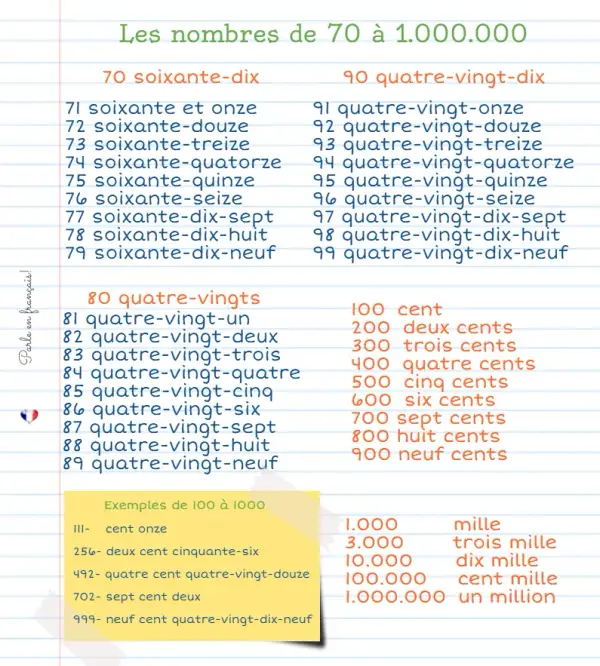 Les nombres de 70 à 1.000.000
70 soixante-dix
71 soixante et onze
72 soixante-douze
73 soixante-treize
74 soixante-quatorze
75 soixante-quinze
76 soixante-seize
77 soixante-dix-sept
78 soixante-dix-huit
79 soixante-dix-neuf
90 quatre-vingt-dix
91 quatre-vingt-onze
92 quatre-vingt-douze
93 quatre-vingt-treize
94 quatre-vingt-quatorze
95 quatre-vingt-quinze
96 quatre-vingt-seize
97 quatre-vingt-dix-sept
98 quatre-vingt-dix-huit
99 quatre-vingt-dix-neuf
Parle en français!
80 quatre-vingts
81 quatre-vingt-un
82 quatre-vingt-deux
83 quatre-vingt-trois
84 quatre-vingt-quatre
85 quatre-vingt-cinq
86 quatre-vingt-six
87 quatre-vingt-sept
88 quatre-vingt-huit
89 quatre-vingt-neuf
100 cent
200 deux cents
300 trois cents
400 quatre cents
500 cinq cents
600 six cents
700 sept cents
800 huit cents
900 neuf cents
Exemples de 100 à 1000
111- cent onze
256- deux cent cinquante-six
492- quatre cent quatre-vingt-douze
702- sept cent deux
999- neuf cent quatre-vingt-dix-neuf
1.000 mille
3.000 trois mille
10.000 dix mille
100.000 cent mille
1.000.000 un million